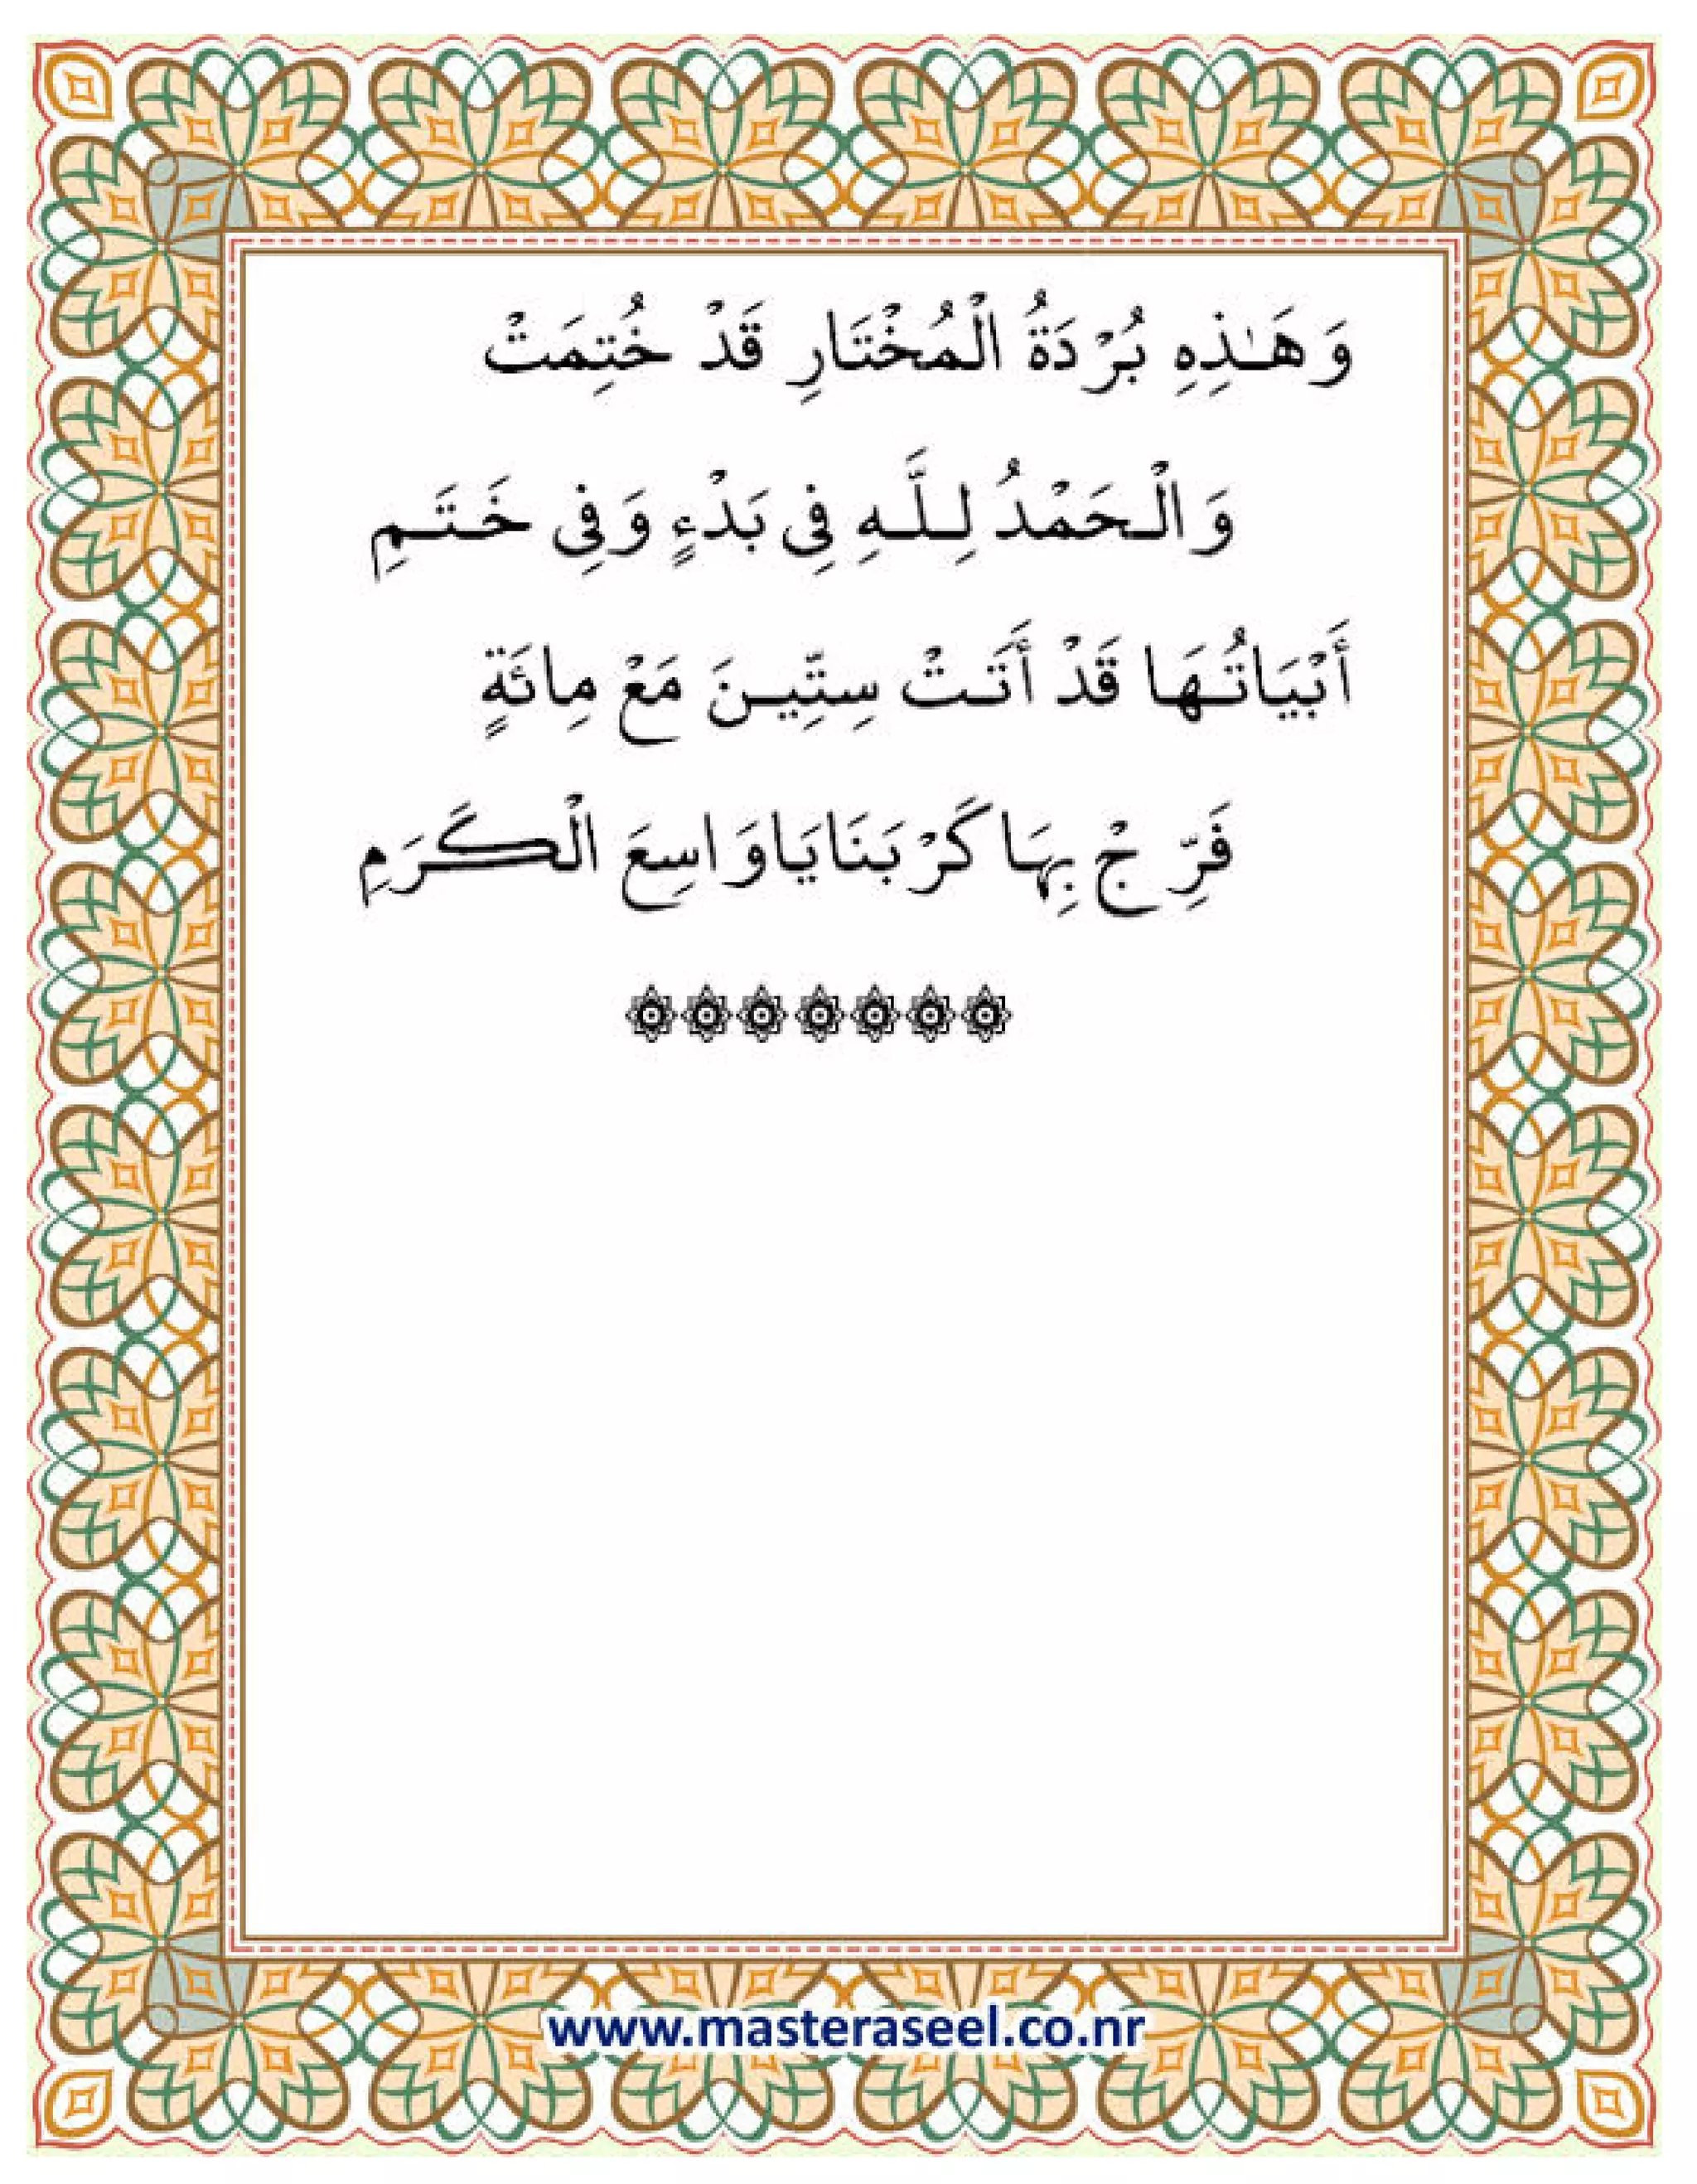 وَهَـٰذِهِ بُرْدَةُ الْمُخْتَارِ قَدْ خُتِمَتْ
وَالْحَمْدُ لِلَّهِ فِى بَدْءٍ وَفِى خَتَمِ
أَبْيَاتُهَا قَدْ أَتَتْ سِتِّينَ مَعْ مِائَةٍ
فَرِّجْ بِهَا كَرْبَنَا يَا وَاسِعَ الْكَرَمِ
www.masteraseel.co.nr